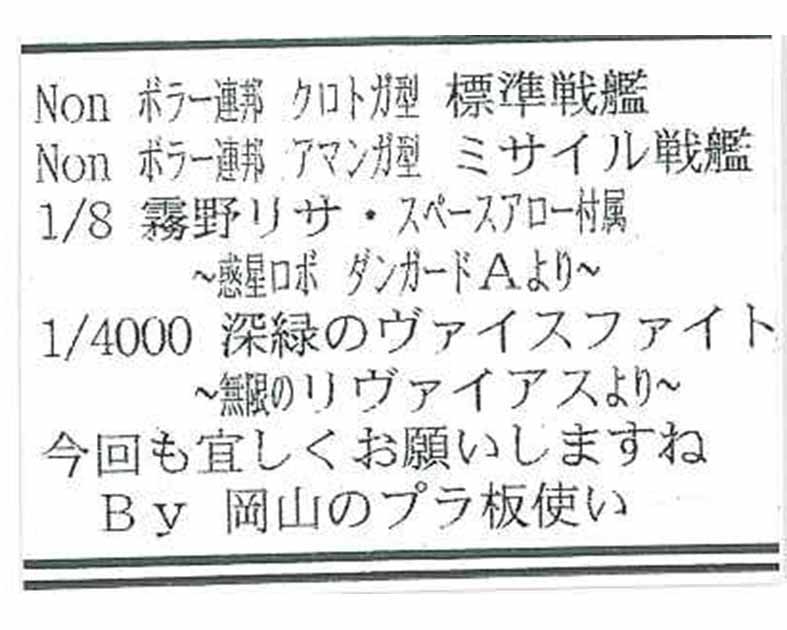 Non ボラー連邦 クロトガ型 標準戦艦
Non ボラー連邦 アマンガ型 ミサイル戦艦
1/8 霧野リサ・スペースアロー付属
~惑星ロボ ダンガードAより~
1/4000 深緑のヴァイスファイト
~無限のリヴァイアスより~
今回も宜しくお願いしますね
By 岡山のプラ板使い